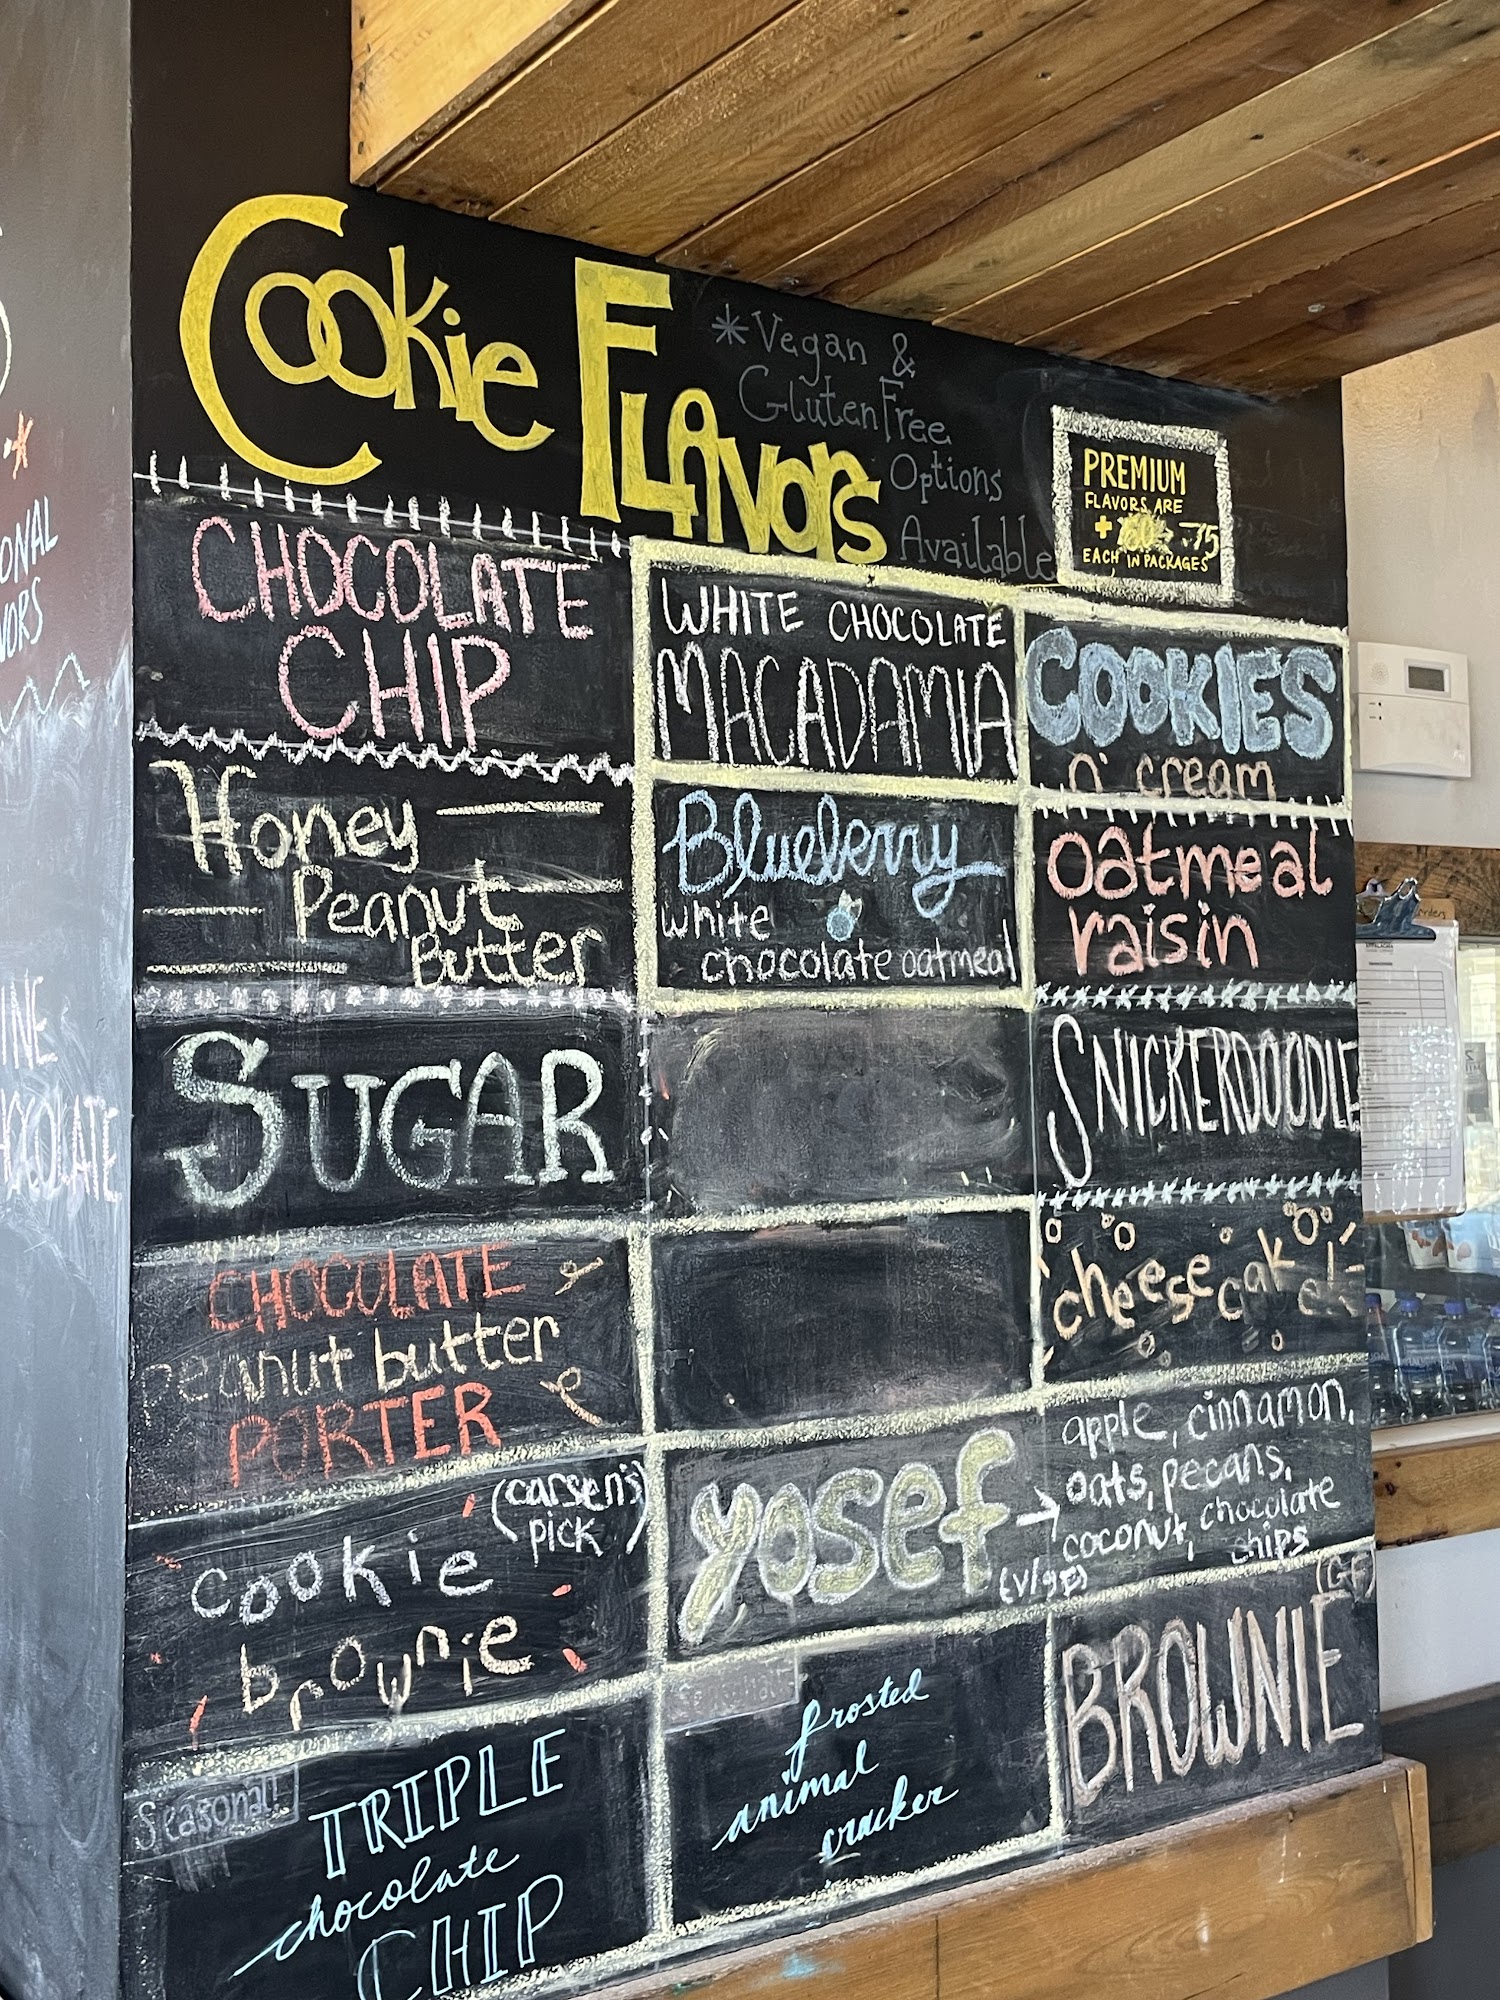 Cookie Flavors
*Vegan &
Gluten Free
Options
Available
PREMIUM
FLAVORS ARE
+ .75
EACH IN PACKAGES
CHOCOLATE
CHIP
WHITE CHOCOLATE
MACADAMIA
COOKIES
n' cream
Honey
Peanut
Butter
Blueberry
white
chocolate oatmeal
oatmeal
raisin
SUGAR
SNICKERDOODLE
CHOCOLATE
peanut butter
PORTER
cheesecake!
(carsen's
pick)
cookie
brownie
yosef →
(V/GF)
apple, cinnamon,
oats, pecans,
coconut, chocolate
chips
(GF)
BROWNIE
Seasonal!
TRIPLE
chocolate
CHIP
Seasonal
frosted
animal
cracker
ONAL
VORS
INE
HOCOLATE